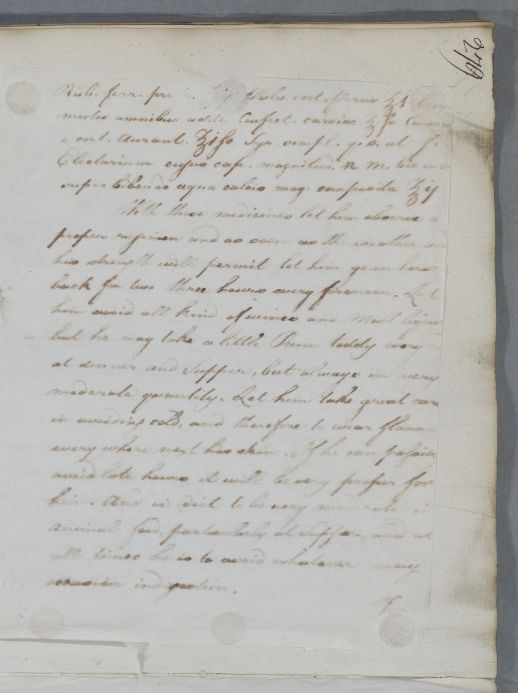 219
Rub. ferr. pre ʒij Pulv. cort. Peruv. ℥1
omnibus adde Conf.
e cort. Aurant. ℥iſs Syr. simpl. q.s. ut f.
Electarium cujus cap. magnitud. n. m.
superbibendo aqua calcis mag. composita ℥ij
With these medicines let him observe a
proper regimen and as soon as the weather
his strength will permit let him go on horse
back for two three hours every forenoon. Let
him avoid all kind of wines and Malt liquor
but he may take a little Rum toddy
at dinner and Supper, but always in very
moderate quantity. Let him take great care
in avoiding cold, and therefore to wear flannel
every where next his skin. If he can
avoid late hours it will be very proper for
him. And in diet to be very moderate
Animal food, particularly at Supper, and at
all times he is to avoid whatever may
occasion indigestion.